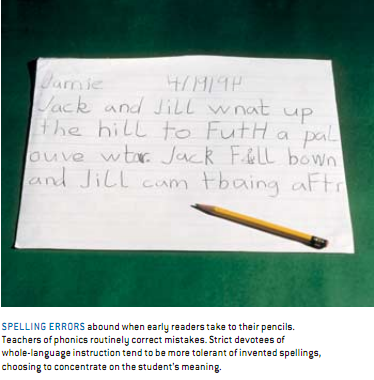 Jamie 4/19/94
Jack and Jill wnat up
the hill to FutH a pal
ouve wtar. Jack Fell bown
and Jill cam tbaing aFtr
SPELLING ERRORS abound when early readers take to their pencils.
Teachers of phonics routinely correct mistakes. Strict devotees of
whole-language instruction tend to be more tolerant of invented spellings,
choosing to concentrate on the student's meaning.